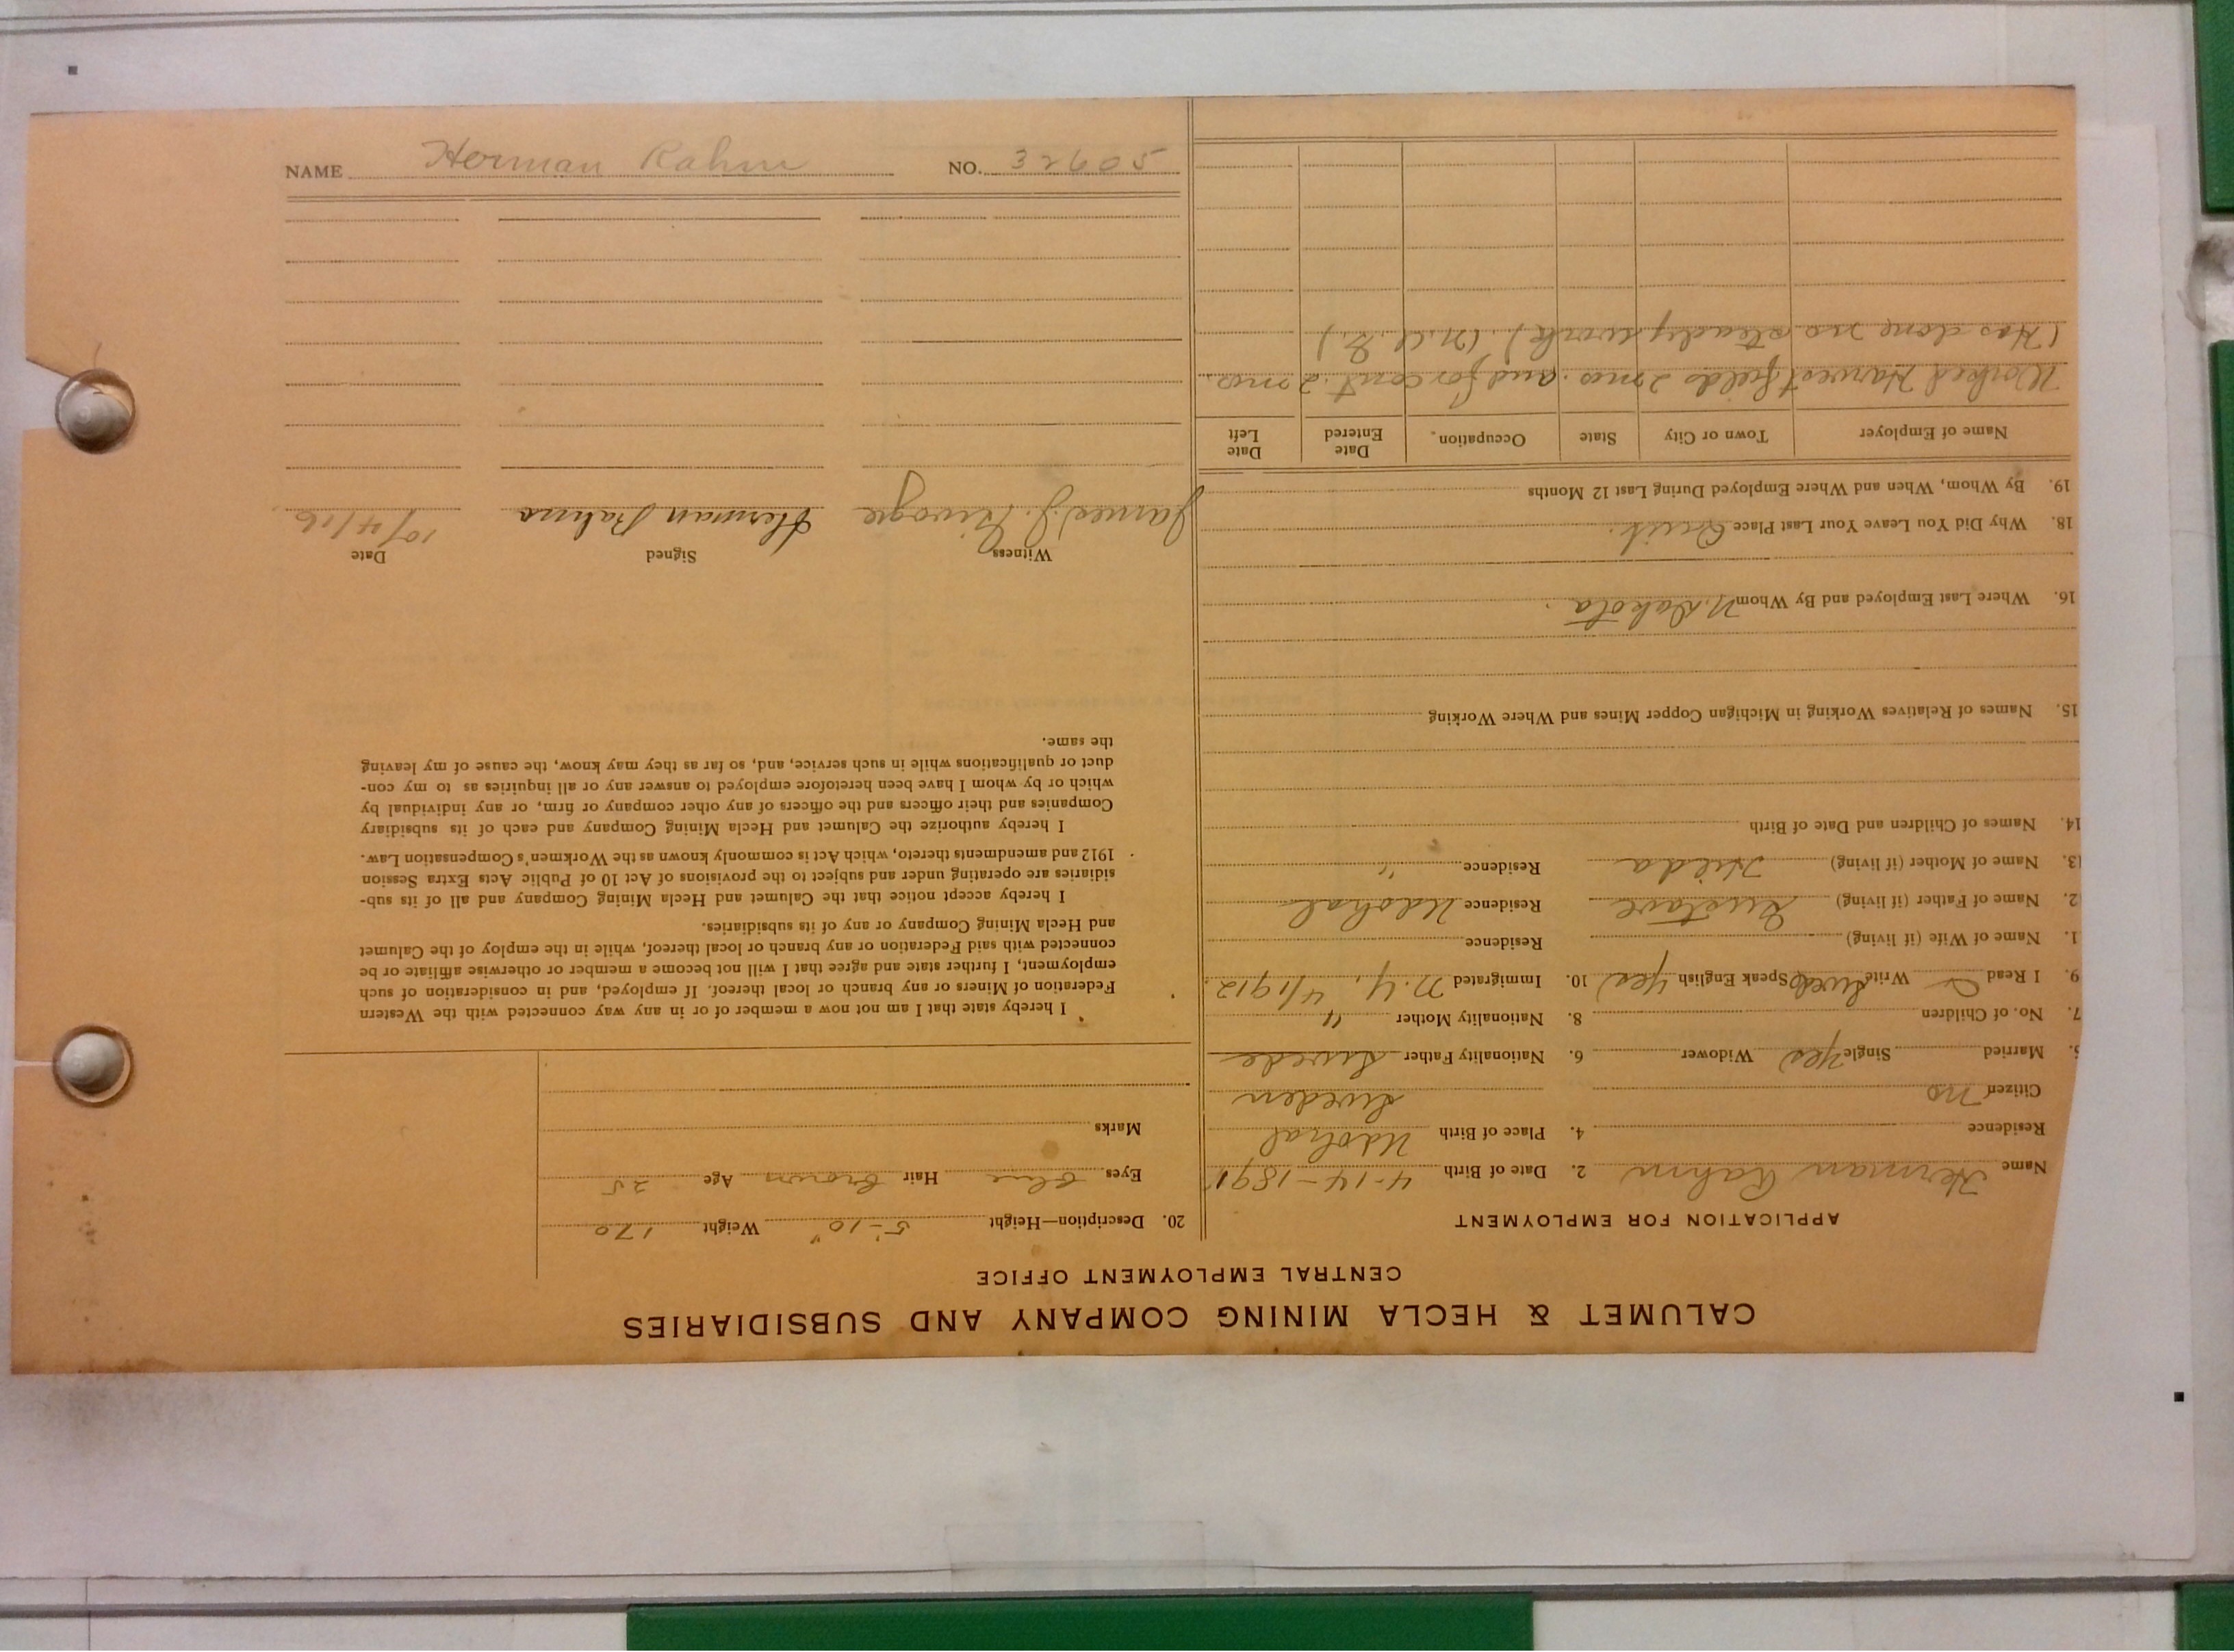 NAME Herman Rahm NO. 32605
CALUMET & HECLA MINING COMPANY AND SUBSIDIARIES
CENTRAL EMPLOYMENT OFFICE
APPLICATION FOR EMPLOYMENT
Name Herman Rahm 2. Date of Birth 4-14-1891
Residence 4. Place of Birth
Citizen no Sweden
5. Married Single yes Widower 6. Nationality Father Swede
7. No. of Children 8. Nationality Mother "
9. I Read Write Swede Speak English yes 10. Immigrated N.Y. 4/1912
1. Name of Wife (if living) Residence
2. Name of Father (if living) Gustave Residence
13. Name of Mother (if living) Hilda Residence "
14. Names of Children and Date of Birth
15. Names of Relatives Working in Michigan Copper Mines and Where Working
16. Where Last Employed and By Whom N. Dakota.
18. Why Did You Leave Your Last Place Quit.
19. By Whom, When and Where Employed During Last 12 Months
Name of Employer Town or City State Occupation Date Entered Date Left
Worked Harvest fields 2 mos. and for cont. 2 mos.
(Has done no steady work).
20. Description—Height 5'-10" Weight 170
Eyes blue Hair Brown Age 25
Marks
I hereby state that I am not now a member of or in any way connected with the Western
Federation of Miners or any branch or local thereof. If employed, and in consideration of such
employment, I further state and agree that I will not become a member or otherwise affiliate or be
connected with said Federation or any branch or local thereof, while in the employ of the Calumet
and Hecla Mining Company or any of its subsidiaries.
I hereby accept notice that the Calumet and Hecla Mining Company and all of its sub-
sidiaries are operating under and subject to the provisions of Act 10 of Public Acts Extra Session
1912 and amendments thereto, which Act is commonly known as the Workmen's Compensation Law.
I hereby authorize the Calumet and Hecla Mining Company and each of its subsidiary
Companies and their officers and the officers of any other company or firm, or any individual by
which or by whom I have been heretofore employed to answer any or all inquiries as to my con-
duct or qualifications while in such service, and, so far as they may know, the cause of my leaving
the same.
Witness Signed Date
James J. Herman Rahm 10/4/16